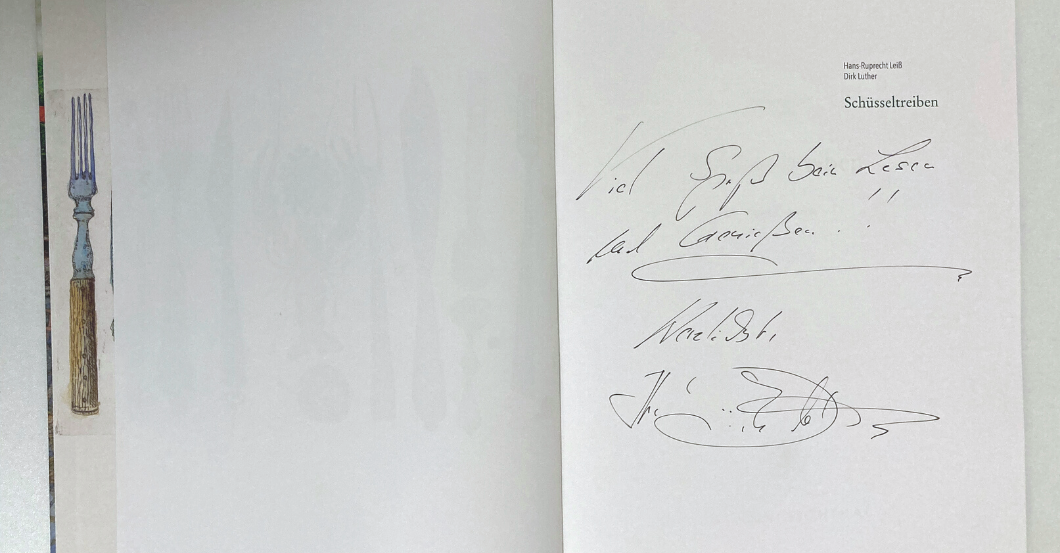 Hans-Ruprecht Leiß
Dirk Luther
Schüsseltreiben
Viel Spaß beim Lesen
und Genießen..!!
Herzlichst,
Ihr